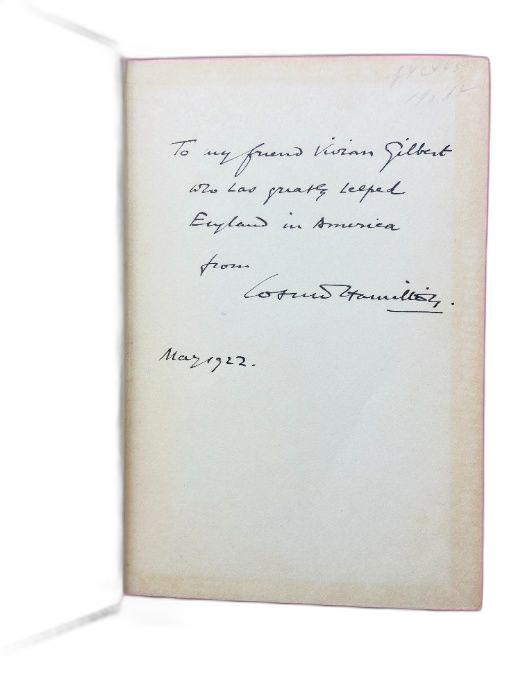 To my friend Vivian Gilbert
who has greatly helped
England in America
from
Cosmo Hamilton.
May 1922.